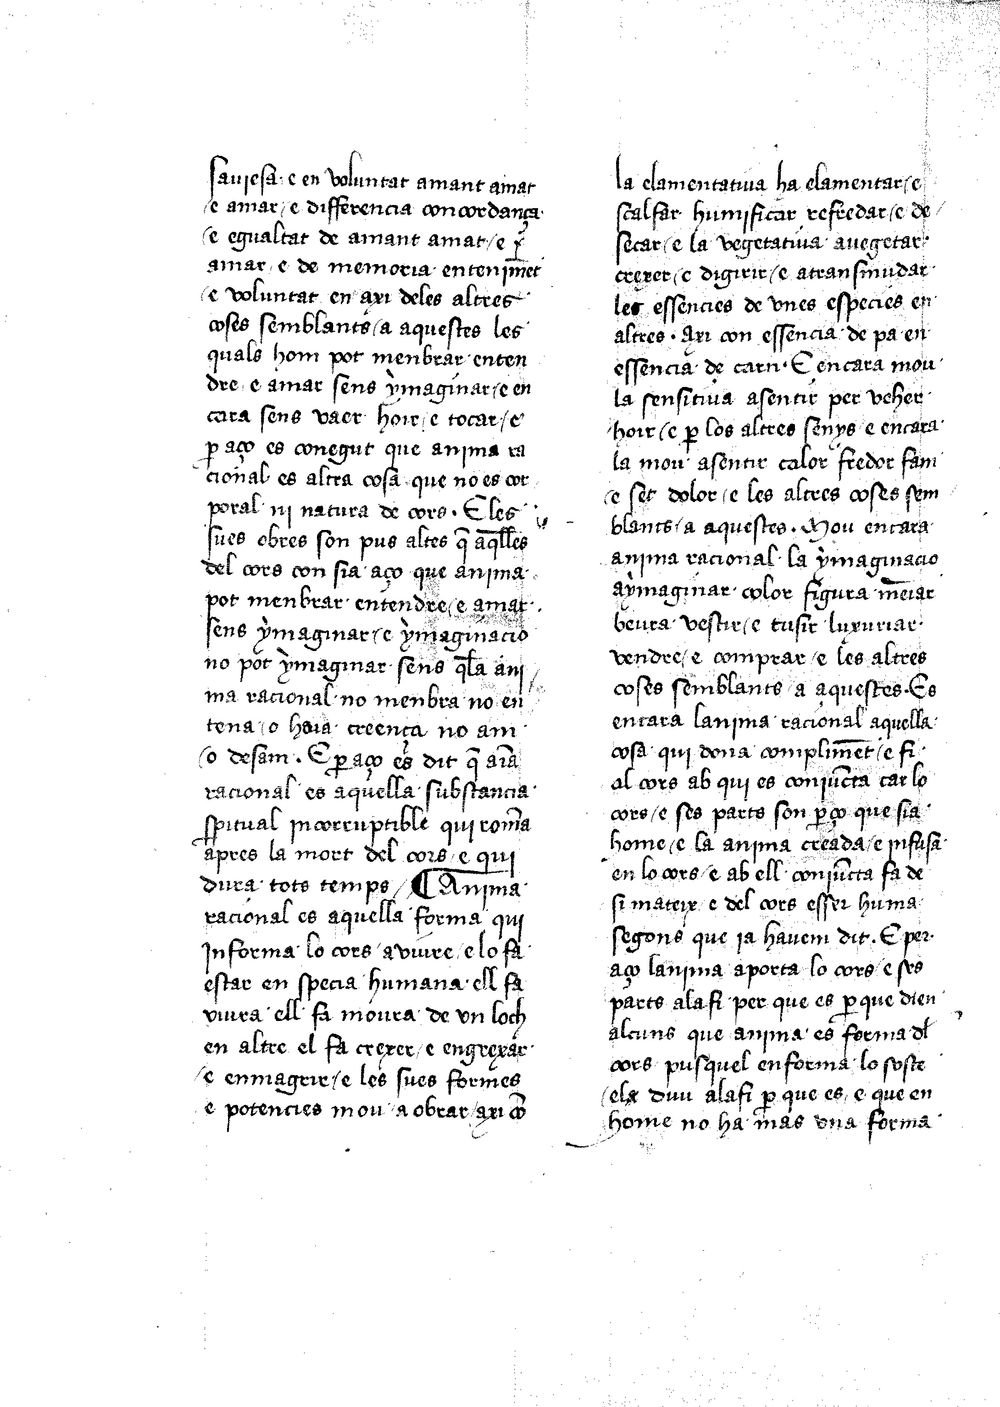 sauiesa · e en voluntat amant amat
/e amar /e differencia concordança
/e egualtat de amant amat /e p̱
amar · e de memoria entenim̄et
/e voluntat en axi deles altres
coses semblants /a aquestes les
quals hom pot menbrar enten
dre · e amar sens ẏmaginar /e en
cara sens vaer hoir /e tocar /e
p̱ aço es conegut que anima ra
cional es altra cosa que no es cor
poral ni natura de cors · E les
sues obres son pus altes q̄ aq̄lles
del cors con sia aço que anima
pot menbrar entendre /e amar ·
sens ẏmaginar /e ẏmaginacio
no pot ẏmaginar sens q̄la ani
ma racional no menbra no en
tena /o haia creença no am
/o desam · E p̱ aço es dit q̄ aīa
racional es aquella substancia
sp̱itual incorruptible qui romā
apres la mort del cors /e qui
dura tots temps / ¶ Anima
racional es aquella forma qui
informa lo cors a viure /e lo fa
estar en specia humana ell fa
viura ell fa moura de vn loch
en altre el fa crexer /e engrexar
/e enmagrir /e les sues formes
e potencies mou a obrar /axi cō
la elamentatiua ha elamentar /e
scalfar humificar refredar /e de
secar /e la vegetatiua a vegetar
crexer /e digirir /e a transmudar
les essencies de vnes especies en
altres · axi con essencia de pa en
essencia de carn · E encara mou
la sensitiua a sentir per veher
hoir /e p̱ los altres senys e encara
la mou a sentir calor fredor fam
/e set dolor /e les altres coses sem
blants /a aquestes · Mou encara
anima racional la ẏmaginacio
a ẏmaginar color figura mēiar
beura vestir /e tusir luxuriar
vendre /e comprar /e les altres
coses semblants a aquestes · Es
encara lanima racional aquella
cosa qui dona complim̄et /e fi
al cors ab qui es coniūcta car lo
cors /e ses parts son p̱ço que sia
home /e la anima creada /e infusa
en lo cors /e ab ell coniūcta fa de
si mateix e del cors esser huma
segons que ia hauem dit · E per
aço lanima aporta lo cors /e ses
parts a la fi per que es p̱ que dien
alcuns que anima es forma dl
cors pusquel enforma lo soste
/e la duu a la fi p̱ que es /e que en
home no ha mas vna forma